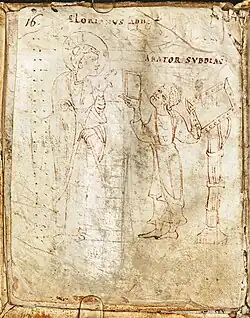 16.
FLORIANUS ABB
ARATOR SVBDIAC